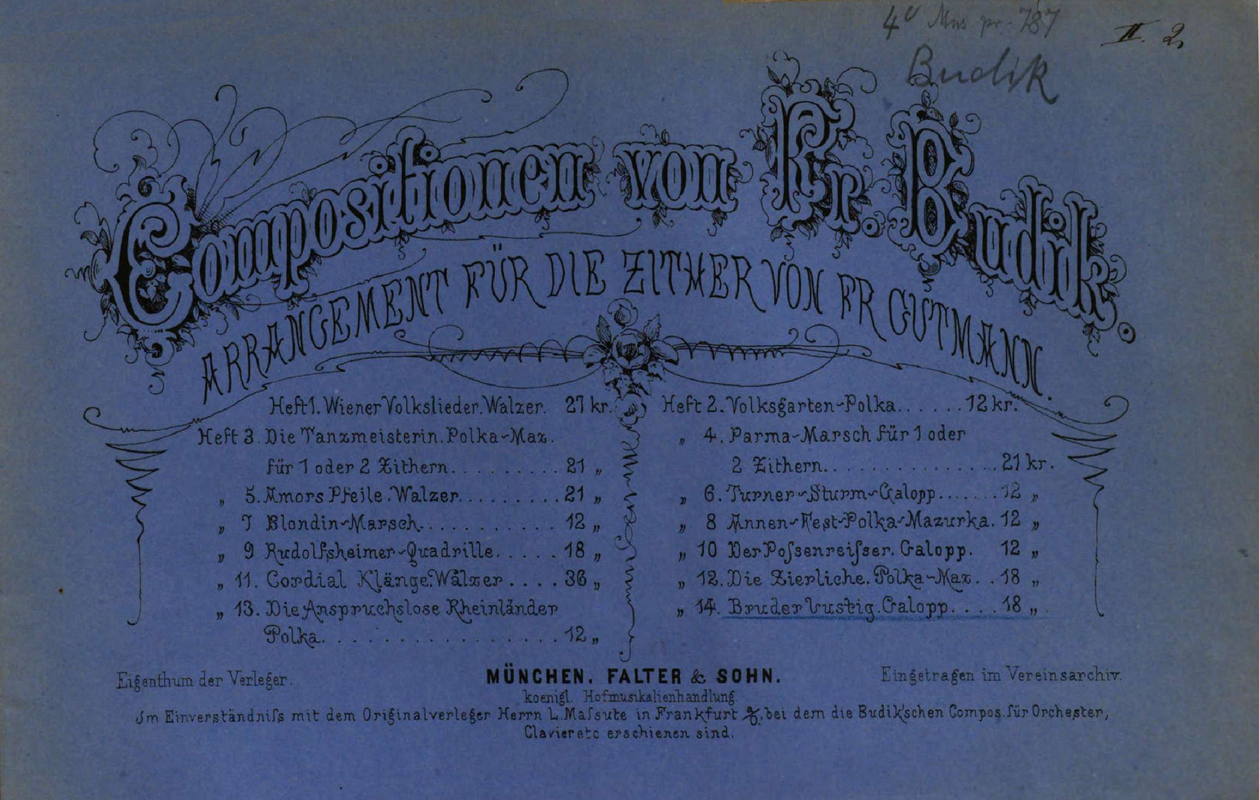 4° Mus pr. 787
II. 2,
Budik
Compositionen von Fr. Budik.
ARRANGEMENT FÜR DIE ZITHER VON FR GUTMANN.
Heft 1. Wiener Volkslieder. Walzer. 27 kr.
Heft 3. Die Tanzmeisterin. Polka-Maz.
für 1 oder 2 Zithern. . . . . . . . . . 21 „
„ 5. Amors Pfeile. Walzer. . . . . . . . . 21 „
„ 7 Blondin-Marsch. . . . . . . . . . . . 12 „
„ 9 Rudolfsheimer-Quadrille. . . . . 18 „
„ 11. Cordial Klänge. Walzer . . . . 36 „
„ 13. Die Anspruchslose Rheinländer
Polka. . . . . . . . . . . . . . . . . . . . 12 „
Heft 2. Volksgarten-Polka. . . . . . 12 kr.
„ 4. Parma-Marsch für 1 oder
2 Zithern. . . . . . . . . . . . . . . 21 kr.
„ 6. Turner-Sturm-Galopp. . . . . . 12 „
„ 8 Annen-Fest-Polka-Mazurka. 12 „
„ 10 Der Poſsenreiſser. Galopp. 12 „
„ 12. Die Zierliche. Polka-Maz. . 18 „
„ 14. Bruder Lustig. Galopp. . . . . 18 „
Eigenthum der Verleger.
MÜNCHEN. FALTER & SOHN.
Eingetragen im Vereinsarchiv.
koenigl. Hofmusikalienhandlung.
Im Einverständniſs mit dem Originalverleger Herrn L. Maſsute in Frankfurt a/O, bei dem die Budik'schen Compos. für Orchester,
Clavier etc erschienen sind.